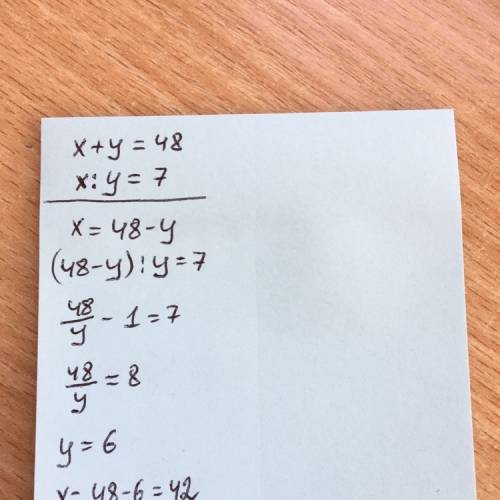 x+y=48
x:y=7
x=48-y
(48-y):y=7
48/y - 1=7
48/y = 8
y=6
x-48-6=42